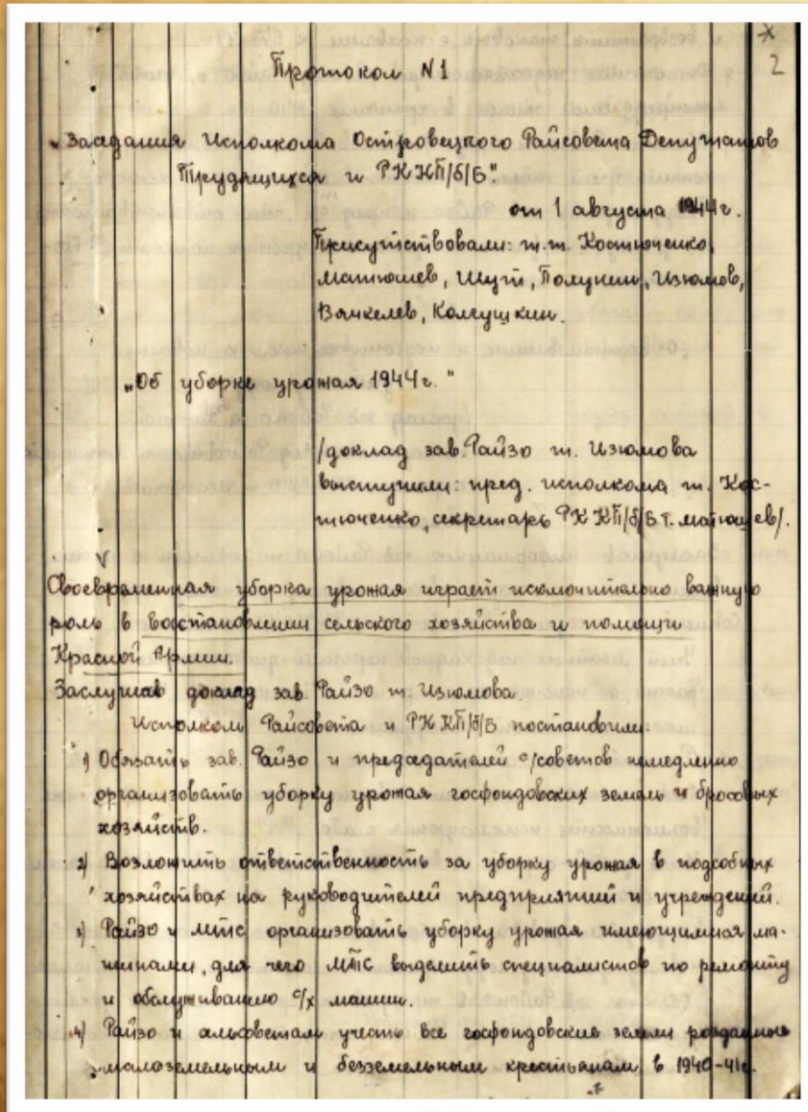 2
Протокол N1
„Заседания Исполкома Островецкого Райсовета Депутатов
Трудящихся и РК КП/б/Б".
от 1 августа 1944г.
Присутствовали: т.т. Костюченко,
Матюшев, Шут, Полунин, Изюмов,
Вячкелев, Колеушкин.
„Об уборке урожая 1944г."
/доклад зав. Райзо т. Изюмова
выступили: пред. исполкома т. Кос-
тюченко, секретарь РК КП/б/Б т. Матюшев/.
Своевременная уборка урожая играет исключительно важную
роль в восстановлении сельского хозяйства и помощи
Красной Армии.
Заслушав доклад зав. Райзо т. Изюмова.
Исполком Райсовета и РК КП/б/Б постановили:
1) Обязать зав. Райзо и председателей с/советов немедленно
организовать уборку урожая госфондовских земель и бросовых
хозяйств.
2) Возложить ответственность за уборку урожая в подсобных
хозяйствах на руководителей предприятий и учреждений.
3) Райзо и МТС организовать уборку урожая имеющимися ма-
шинами, для чего МТС выделить специалистов по ремонту
и обслуживанию с/х машин.
4) Райзо и сельсоветам учесть все госфондовские земли розданные
малоземельным и безземельным крестьянам в 1940-41г.